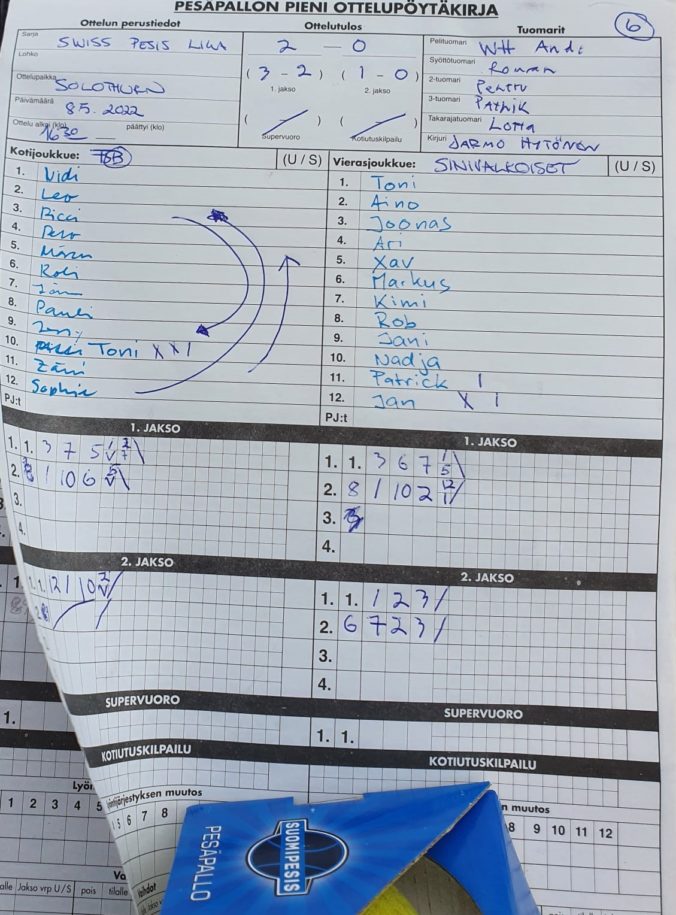 PESÄPALLON PIENI OTTELUPÖYTÄKIRJA
6
Ottelun perustiedot
Ottelutulos
Tuomarit
Sarja SWISS PESIS LIIGA
Lohko
Ottelupaikka SOLOTHURN
Päivämäärä 8.5.2022
Ottelu alkoi (klo) 16 30 päättyi (klo)
2 — 0
(3 - 2) (1 - 0)
1. jakso 2. jakso
( — ) ( — )
Supervuoro Kotiutuskilpailu
Pelituomari Andi
Syöttötuomari Roman
2-tuomari
3-tuomari Pathik
Takarajatuomari Lotta
Kirjuri JARMO HYTÖNEN
Kotijoukkue: (U / S)
1. Vidi
2. Leo
3. Ricci
4.
5.
6. Robi
7.
8. Pauli
9.
10. Toni X X I
11. Zäni
12. Sophie
PJ:t
Vierasjoukkue: SINIVALKOISET (U / S)
1. Toni
2. Aino
3. Joonas
4. Ari
5. Xav
6. Markus
7. Kimi
8. Rob
9. Jani
10. Nadja
11. Patrick I
12. Jan X I
PJ:t
1. JAKSO
1. 1. 3 7 5
2. 1 10 6
3.
4.
1. JAKSO
1. 1. 3 6 7 1 5
2. 8 1 10 2 12 1
3.
4.
2. JAKSO
1. 1. 12 1 10 2
2.
2. JAKSO
1. 1. 1 2 3 /
2. 6 7 2 3 /
3.
4.
SUPERVUORO
1.
SUPERVUORO
1. 1.
KOTIUTUSKILPAILU
KOTIUTUSKILPAILU
Lyön
1 2 3 4 5
öntijärjestyksen muutos
5 6 7 8
n muutos
8 9 10 11 12
Va
alle Jakso vrp U / S pois tilalle
Vaihdot
PESÄPALLO
SUOMIPESIS